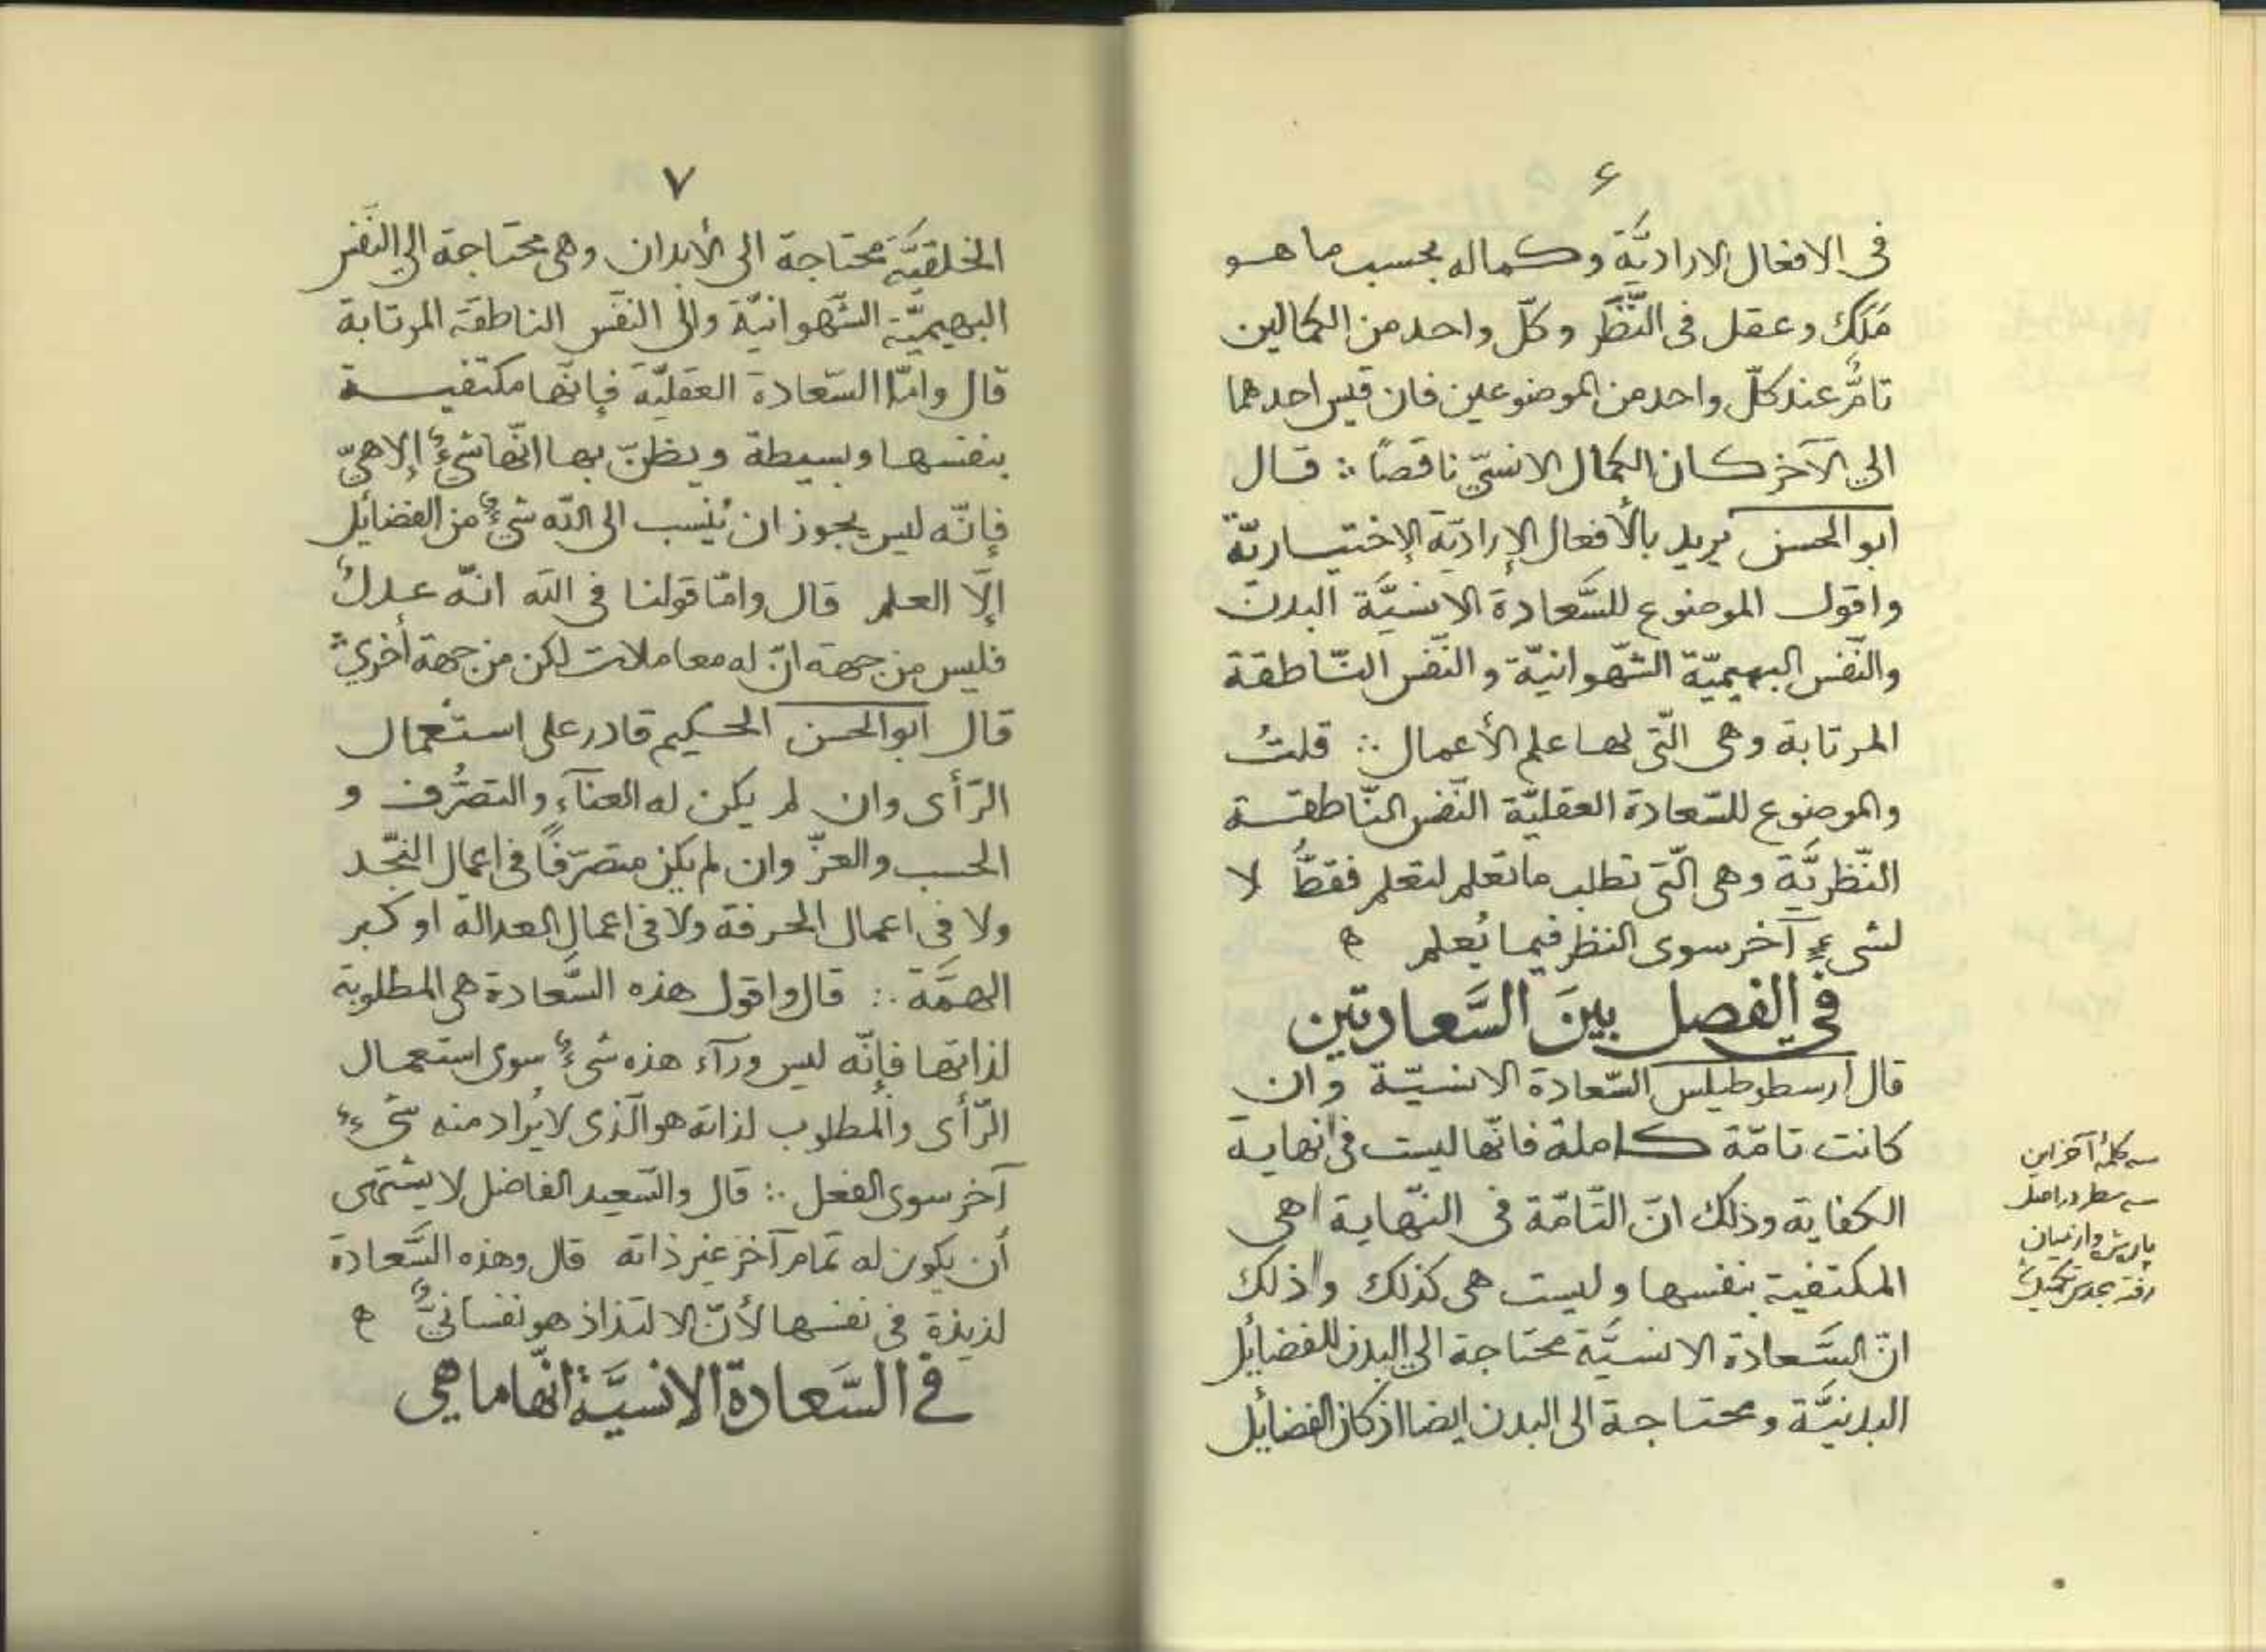 ۶
فى الافعال الاراديَّة وكماله بحسب ما هو
مَلَك وعقل فى النَّظَر وكلّ واحد من الكمالين
تامٌّ عند كلّ واحد من الموضوعين فان قيس احدهما
الى الآخر كان الكمال الانسىّ ناقصًا ∴ قال
ابو الحسن يريد بالأفعال الإراديّة الإختياريّة
واقول الموضوع للسَّعادة الانسيَّة البدن
والنّفس البهيميّة الشّهوانيّة والنّفس النّاطقة
المرتابة وهى الّتى لها علم الأعمال ∴ قلتُ
والموضوع للسّعادة العقليّة النّفس النّاطقة
النّظريَّة وهى الّتى تطلب ما تعلم لتعلم فقطُّ لا
لشىءٍ آخر سوى النظر فيما يُعلم ه
في الفصل بينَ السَّعادتين
قال ارسطوطيلس السّعادة الانسيّة وان
كانت تامّة كاملة فانّها ليست فى نهاية
الكفاية وذلك انّ التّامّة فى النّهاية هى
المكتفية بنفسها وليست هى كذلك وذلك
انّ السَّعادة الانسيَّة محتاجة الى البدن للفضائل
البدنيَّة ومحتاجة الى البدن ايضا اذ كان الفضائل
سه كلمهٔ آخر اين
سه سطر در اصل
رفته
۷
الخلقيَّة محتاجة الى الأبدان وهى محتاجة الى النّفس
البهيميّة الشّهوانيّة والى النفس الناطقة المرتابة
قال وامّا السّعادة العقليّة فإنّها مكتفيـة
بنفسها وبسيطة ويظنّ بها انّها شىءٌ إلاهىّ
فإنّه ليس يجوز ان يُنسب الى الله شىءٌ من الفضائل
إلّا العلم قال وامّا قولنا فى الله انّه عدلٌ
فليس من جهة انّ له معاملات لكن من جهة أخرى ∴
قال ابو الحسن الحكيم قادر على استعمال
الرّأى وان لم يكن له العنآء والتصرُّف و
الحسب والعزّ وان لم يكن متصرّفًا فى اعمال النّجد
ولا فى اعمال الحرفة ولا فى اعمال العدالة او كبر
الهمَّة ∴ قال واقول هذه السَّعادة هى المطلوبة
لذاتها فإنّه ليس ورآء هذه شىءٌ سوى استعمال
الرّأى والمطلوب لذاته هو الّذى لا يُراد منه شىءٌ
آخر سوى الفعل ∴ قال والسّعيد الفاضل لا يشتهى
أن يكون له تمام آخر غير ذاته قال وهذه السَّعادة
لذيذة فى نفسها لأنّ الالتذاذ هو نفسانىٌّ ه
في السَّعادة الانسيَّة انّها ما هى